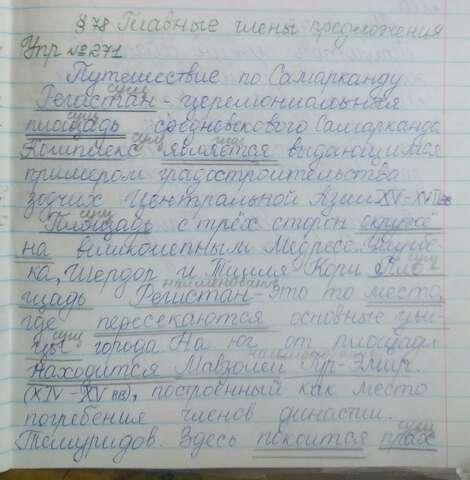 § 78 Главные члены предложения
Упр №271
Путешествие по Самарканду
сущ
Регистан - церемониальная
сущ
площадь средневекового Самарканда
сущ
Комплекс является выдающимся
примером градостроительства
зодчих Центральной Азии XV-XVII
сущ
Площадь с трёх сторон окруже
на великолепным Медресе.
ка, Шердор и Тилля Кори Пло
сущ
щадь Регистан - это то место
где пересекаются основные ули-
сущ
цы города. На юг от площади
находится Мавзолей Гур-Эмир.
(XIV - XV вв), построенный как место
погребения членов династии.
Темуридов. Здесь покоится прах
сущ